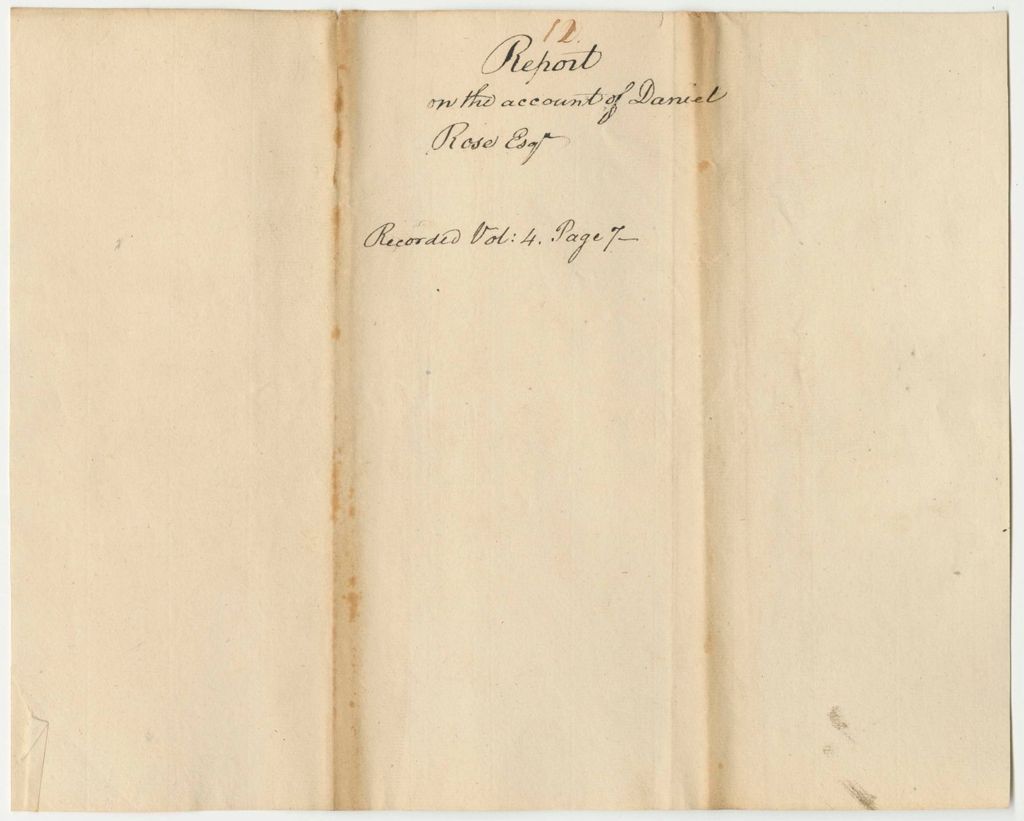 12.
Report
on the account of Daniel
Rose Esqr
Recorded Vol: 4. Page 7—